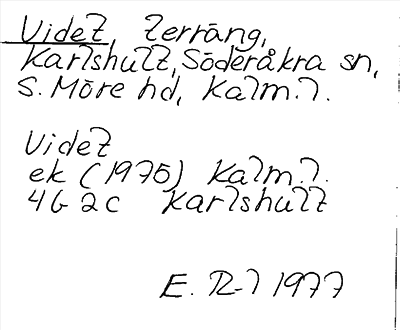 Videt, terräng,
Karlshult, Söderåkra sn,
S. Möre hd, Kalm. l.
Videt
ek (1975) Kalm. l.
4G 2c Karlshult
E. R-l 1977